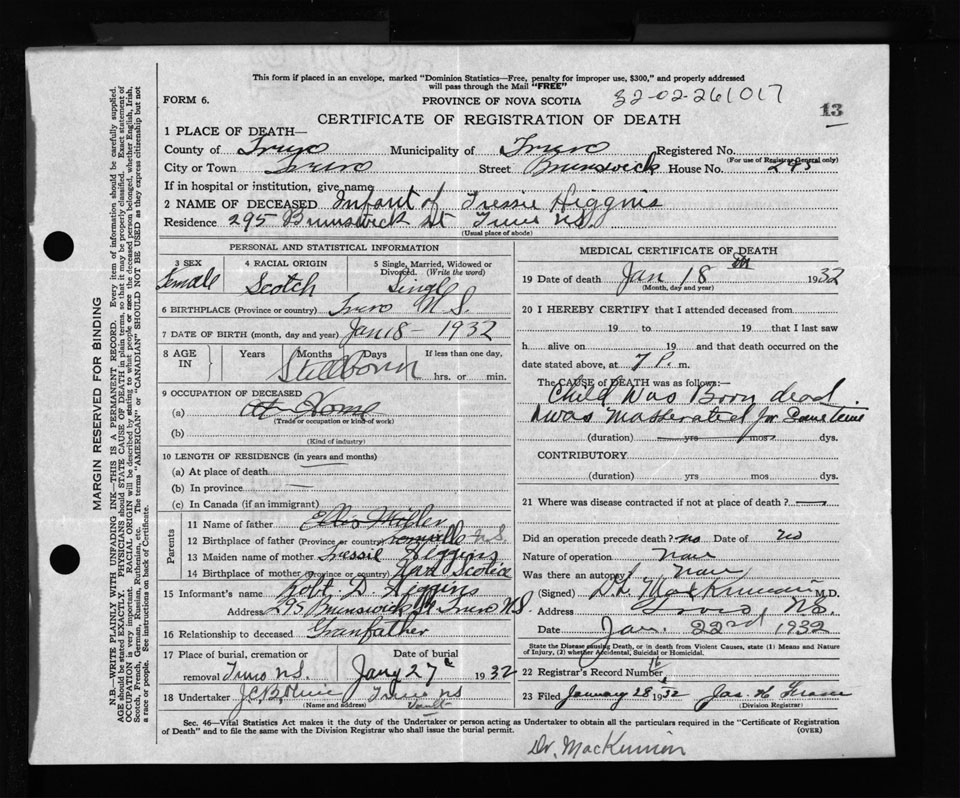 This form if placed in an envelope, marked "Dominion Statistics—Free, penalty for improper use, $300," and properly addressed
will pass through the Mail "FREE"
FORM 6. PROVINCE OF NOVA SCOTIA 32-02-261017
13
CERTIFICATE OF REGISTRATION OF DEATH
1 PLACE OF DEATH—
County of Truro Municipality of Truro Registered No.
(For use of Registrar General only)
City or Town Truro Street Brunswick House No. 295
If in hospital or institution, give name
2 NAME OF DECEASED Infant of Tressie Higgins
Residence 295 Brunswick St Truro N.S.
(Usual place of abode)
PERSONAL AND STATISTICAL INFORMATION
3 SEX 4 RACIAL ORIGIN 5 Single, Married, Widowed or Divorced. (Write the word)
Female Scotch Single
6 BIRTHPLACE (Province or country) Truro N.S.
7 DATE OF BIRTH (month, day and year) Jan 18 - 1932
8 AGE IN Years Months Days If less than one day,
Stillborn hrs. or min.
9 OCCUPATION OF DECEASED
(a) At Home
(Trade or occupation or kind of work)
(b)
(Kind of industry)
10 LENGTH OF RESIDENCE (in years and months)
(a) At place of death
(b) In province
(c) In Canada (if an immigrant)
Parents
11 Name of father Ellis Miller
12 Birthplace of father (Province or country) N.S.
13 Maiden name of mother Tressie Higgins
14 Birthplace of mother (Province or country) Nova Scotia
15 Informant's name Robt D. Higgins
Address 295 Brunswick St Truro N.S.
16 Relationship to deceased Granfather
17 Place of burial, cremation or removal Date of burial
Truro N.S. Jany 27 1932
18 Undertaker Truro N.S.
(Name and address) Vault
MEDICAL CERTIFICATE OF DEATH
19 Date of death Jan 18th 1932
(Month, day and year)
20 I HEREBY CERTIFY that I attended deceased from
19 to 19 that I last saw
h alive on 19 and that death occurred on the
date stated above, at 7 P. m.
The CAUSE OF DEATH was as follows:
Child Was Born dead
& was Masserated for Some time
(duration) yrs mos dys.
CONTRIBUTORY
(duration) yrs mos dys.
21 Where was disease contracted if not at place of death?
Did an operation precede death? no Date of no
Nature of operation None
Was there an autopsy? None
(Signed) D. L. MacKinnon (M.D.)
Address Truro, N.S.
Date Jan. 22nd 1932
State the Disease causing Death, or in death from Violent Causes, state (1) Means and Nature of Injury, (2) whether Accidental, Suicidal or Homicidal.
22 Registrar's Record Number 16
23 Filed January 28 1932 Jas. H.
(Division Registrar)
Sec. 46—Vital Statistics Act makes it the duty of the Undertaker or person acting as Undertaker to obtain all the particulars required in the "Certificate of Registration
of Death" and to file the same with the Division Registrar who shall issue the burial permit. (OVER)
Dr. MacKinnon
MARGIN RESERVED FOR BINDING
N.B.—WRITE PLAINLY WITH UNFADING INK—THIS IS A PERMANENT RECORD. Every item of information should be carefully supplied.
AGE should be stated EXACTLY. PHYSICIANS should STATE CAUSE OF DEATH in plain terms, so that it may be properly classified. Exact statement of
OCCUPATION is very important. RACIAL ORIGIN will be described by stating to what people or race the deceased person belonged, whether English, Irish,
Scotch, French, German, Russian, Ruthenian, etc. The terms "AMERICAN" or "CANADIAN" SHOULD NOT BE USED as they express citizenship but not
a race or people. See instructions on back of Certificate.